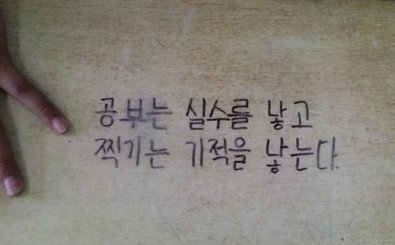 공부는 실수를 낳고
찍기는 기적을 낳는다.